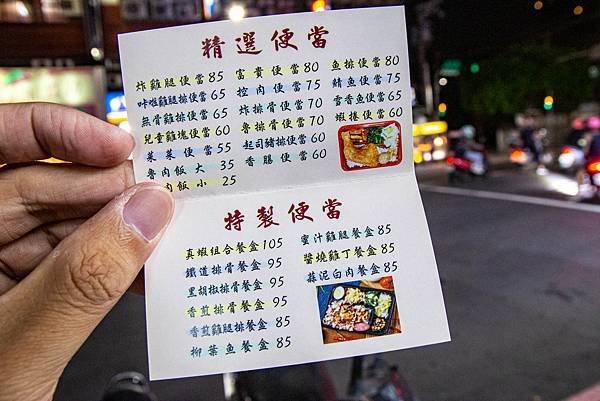 精選便當
炸雞腿便當85
咔啦雞腿排便當65
無骨雞排便當65
兒童雞塊便當60
菜菜便當55
魯肉飯 大 35
肉飯 小 25
富貴便當80
控肉便當75
炸排骨便當70
魯排骨便當70
起司豬排便當60
香腸便當60
魚排便當80
鯖魚便當75
雪香魚便當65
蝦捲便當60
特製便當
真蝦組合餐盒105
鐵道排骨餐盒 95
黑胡椒排骨餐盒 95
香煎排骨餐盒 95
香煎雞腿排餐盒 85
柳葉魚餐盒 85
蜜汁雞腿餐盒85
醬燒雞丁餐盒85
蒜泥白肉餐盒85